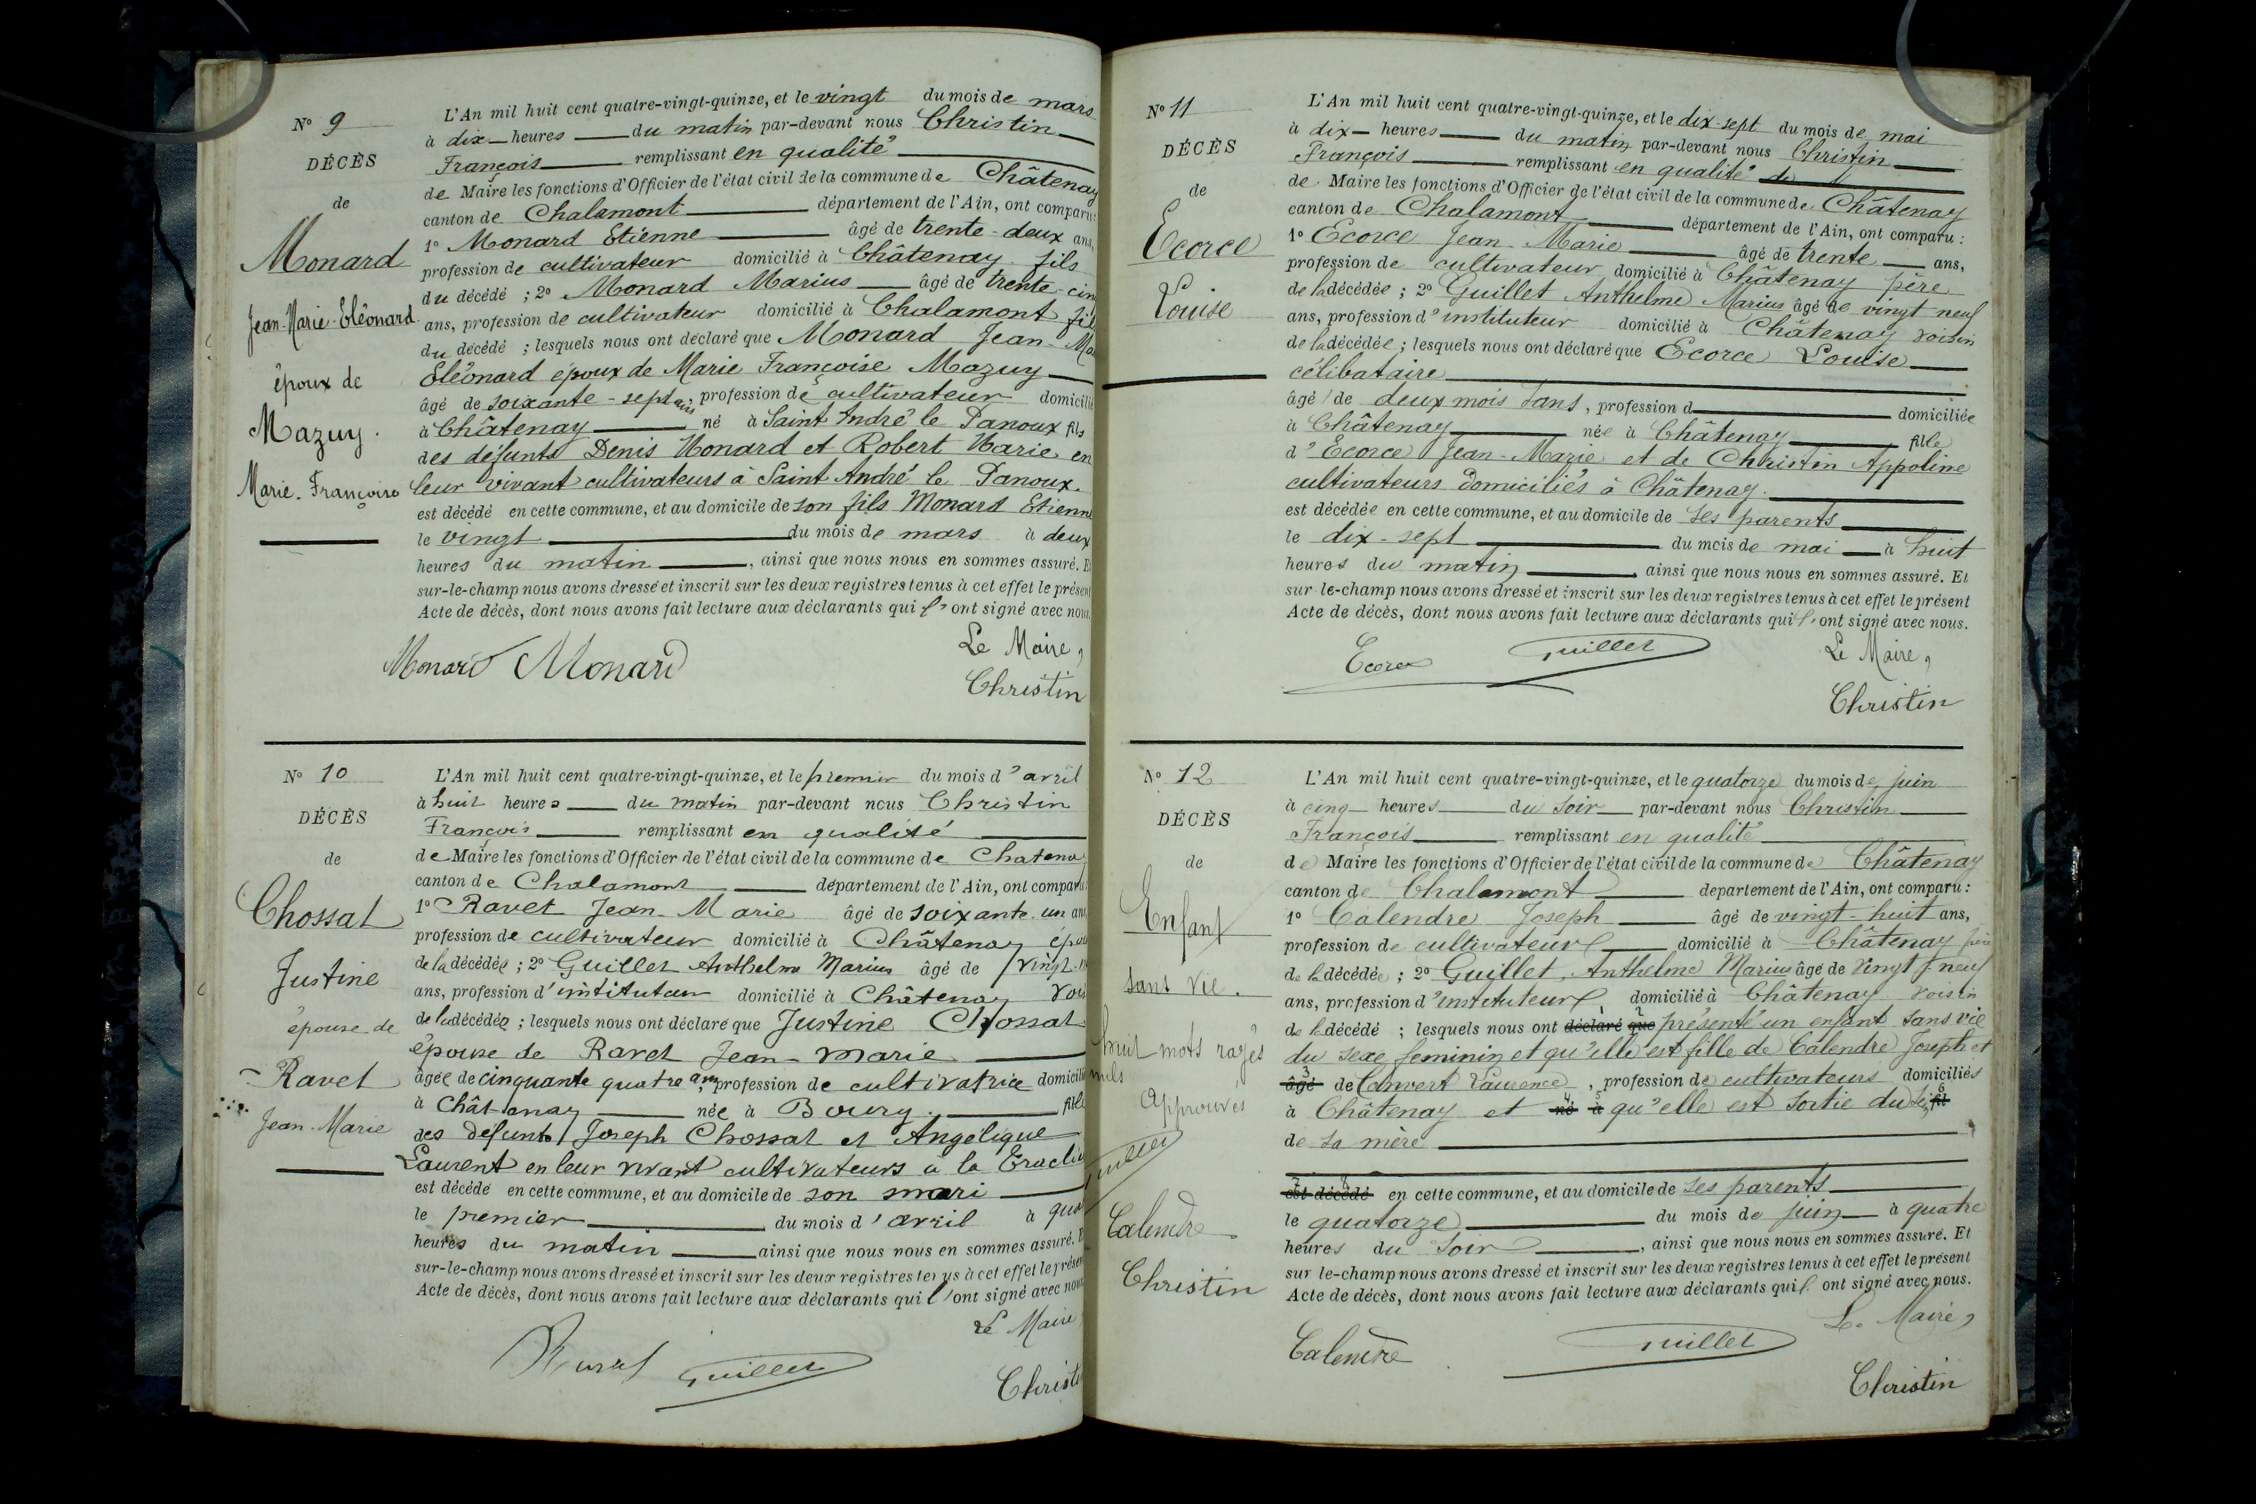 N° 9
DÉCÈS
de
Monard
Jean-Marie-Eléonard
époux de
Mazuy.
Marie-Françoise
L'An mil huit cent quatre-vingt-quinze, et le vingt du mois de mars
à dix heures du matin par-devant nous Christin
François remplissant en qualité
de Maire les fonctions d'Officier de l'état civil de la commune de Châtenay
canton de Chalamont département de l'Ain, ont comparu:
1° Monard Etienne âgé de trente-deux ans,
profession de cultivateur domicilié à Châtenay fils
du décédé ; 2° Monard Marius âgé de trente-cin
ans, profession de cultivateur domicilié à Chalamont fil
du décédé ; lesquels nous ont déclaré que Monard Jean-Ma
Eléonard époux de Marie Françoise Mazuy
âgé de soixante-sept ans, profession de cultivateur domicilié
à Châtenay né à Saint André le Panoux fils
des défunts Denis Monard et Robert Marie en
leur vivant cultivateurs à Saint André le Panoux.
est décédé en cette commune, et au domicile de son fils Monard Etienne
le vingt du mois de mars à deux
heures du matin, ainsi que nous nous en sommes assuré. E
sur-le-champ nous avons dressé et inscrit sur les deux registres tenus à cet effet le présent
Acte de décès, dont nous avons fait lecture aux déclarants qui l'ont signé avec nous.
Monard Monard
Le Maire,
Christin
N° 10
DÉCÈS
de
Chossat
Justine
épouse de
Ravet
Jean-Marie
L'An mil huit cent quatre-vingt-quinze, et le premier du mois d'avril
à huit heures du matin par-devant nous Christin
François remplissant en qualité
de Maire les fonctions d'Officier de l'état civil de la commune de Chatena
canton de Chalamont département de l'Ain, ont comparu
1° Ravet Jean-Marie âgé de soixante-un an
profession de cultivateur domicilié à Châtenay épou
de la décédée ; 2° Guillet Anthelme Marius âgé de vingt-n
ans, profession d'instituteur domicilié à Châtenay vois
de la décédée ; lesquels nous ont déclaré que Justine Chossat
épouse de Ravet Jean-Marie
âgée de cinquante quatre ans, profession de cultivatrice domicilié
à Châtenay née à Bourg. fille
des défunts Joseph Chossat et Angélique
Laurent en leur vivant cultivateurs à la
est décédé en cette commune, et au domicile de son mari
le premier du mois d'avril à qua
heures du matin ainsi que nous nous en sommes assuré. E
sur-le-champ nous avons dressé et inscrit sur les deux registres tenus à cet effet le présen
Acte de décès, dont nous avons fait lecture aux déclarants qui l'ont signé avec nous
Le Maire,
Ravet Guillet
Christi
N° 11
DÉCÈS
de
Ecorce
Louise
L'An mil huit cent quatre-vingt-quinze, et le dix-sept du mois de mai
à dix heures du matin par-devant nous Christin
François remplissant en qualité de
de Maire les fonctions d'Officier de l'état civil de la commune de Châtenay
canton de Chalamont département de l'Ain, ont comparu :
1° Ecorce Jean-Marie âgé de trente ans,
profession de cultivateur domicilié à Châtenay père
de la décédée ; 2° Guillet Anthelme Marius âgé de vingt neuf
ans, profession d'instituteur domicilié à Châtenay voisin
de la décédée ; lesquels nous ont déclaré que Ecorce Louise
célibataire
âgé de deux mois sans, profession d domiciliée
à Châtenay née à Châtenay fille
d'Ecorce Jean-Marie et de Christin Appoline
cultivateurs domiciliés à Châtenay.
est décédée en cette commune, et au domicile de ses parents
le dix-sept du mois de mai à huit
heures du matin ainsi que nous nous en sommes assuré. Et
sur le-champ nous avons dressé et inscrit sur les deux registres tenus à cet effet le présent
Acte de décès, dont nous avons fait lecture aux déclarants qui l'ont signé avec nous.
Ecorce Guillet
Le Maire,
Christin
N° 12
DÉCÈS
de
Enfant
sans vie.
huit mots rayés
nuls
Approuvés
Guillet
Calendre
Christin
L'An mil huit cent quatre-vingt-quinze, et le quatorze du mois de juin
à cinq heures du soir par-devant nous Christin
François remplissant en qualité
de Maire les fonctions d'Officier de l'état civil de la commune de Châtenay
canton de Chalamont département de l'Ain, ont comparu :
1° Calendre Joseph âgé de vingt-huit ans,
profession de cultivateur domicilié à Châtenay père
de la décédée ; 2° Guillet Anthelme Marius âgé de vingt neuf
ans, profession d'instituteur domicilié à Châtenay voisin
de la décédé ; lesquels nous ont déclaré que présenté un enfant sans vie
du sexe féminin et qu'elle est fille de Calendre Joseph et
âgé de Convert Laurence, profession de cultivateurs domiciliés
à Châtenay et né à qu'elle est sortie du sein fil
de sa mère
est décédé en cette commune, et au domicile de ses parents
le quatorze du mois de juin à quatre
heures du soir, ainsi que nous nous en sommes assuré. Et
sur le-champ nous avons dressé et inscrit sur les deux registres tenus à cet effet le présent
Acte de décès, dont nous avons fait lecture aux déclarants qui l'ont signé avec nous.
Le Maire,
Calendre Guillet
Christin